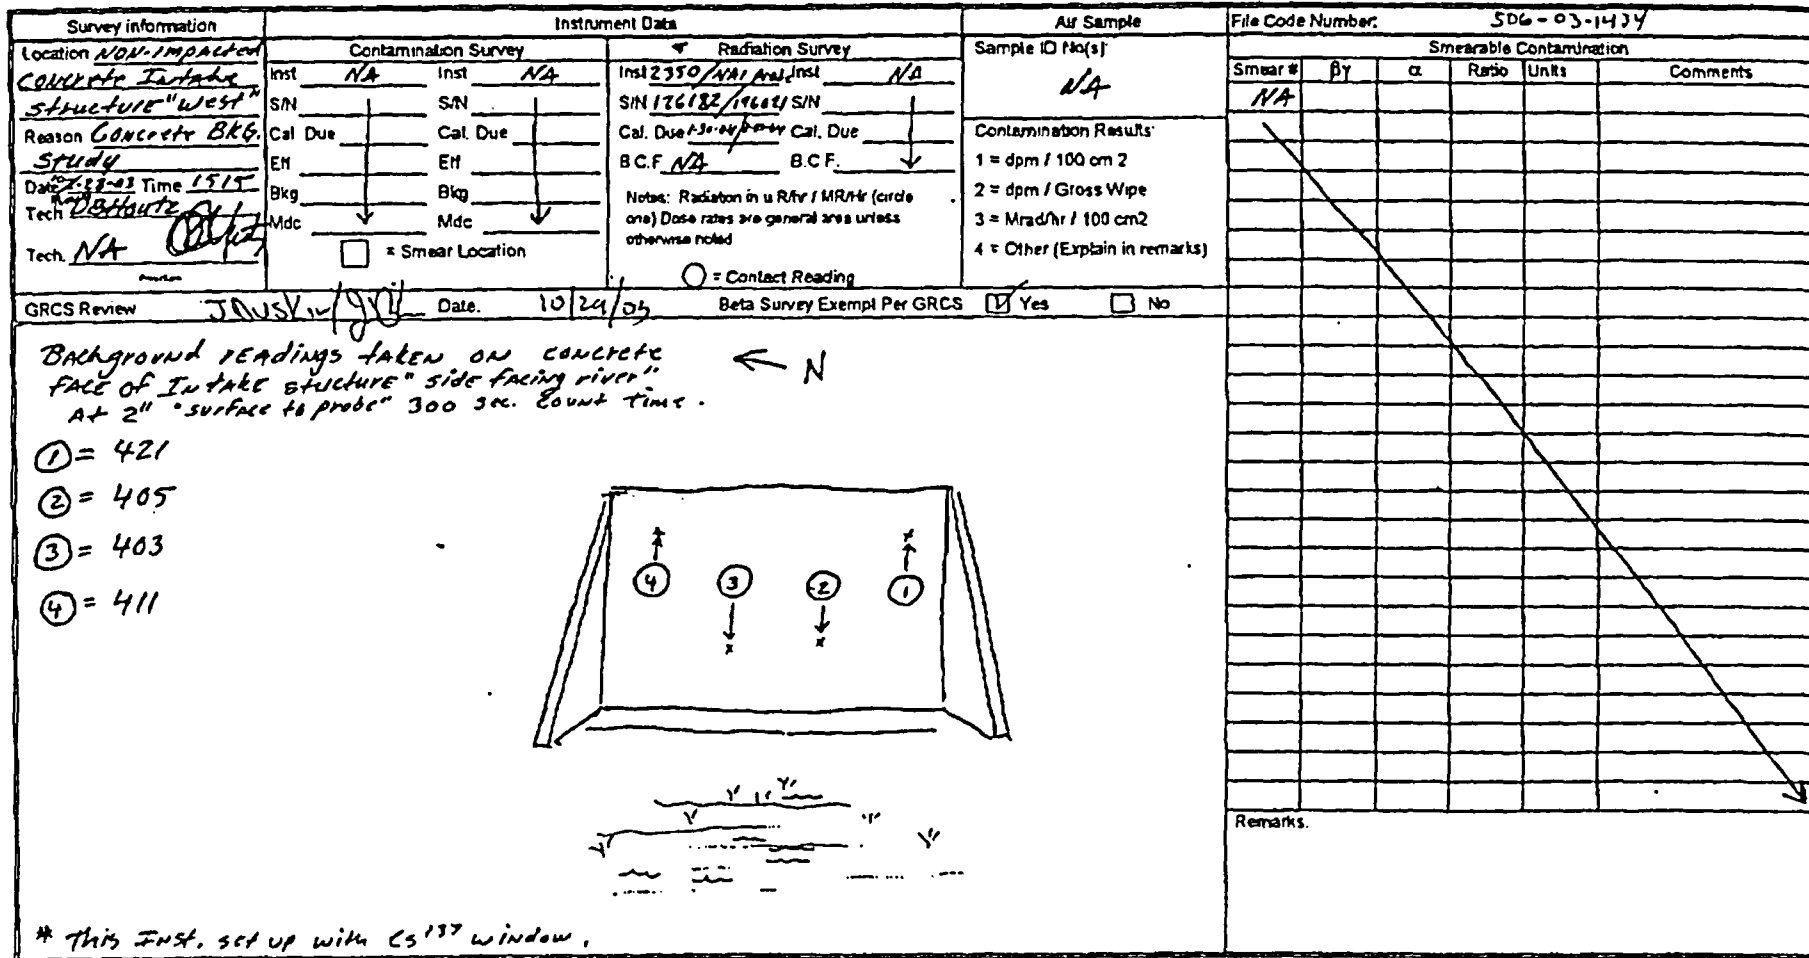 Survey information
Location NON-IMPACTED
CONCRETE Intake
STRUCTURE "West"
Reason Concrete BKG.
Study
Date -28-03 Time 1515
Tech DBHoutz
Tech. NA
Instrument Data
Contamination Survey
Inst NA Inst NA
S/N S/N
Cal Due Cal. Due
Eff Eff
Bkg Bkg
Mdc Mdc
= Smear Location
* Radiation Survey
Inst 2350/NAI Inst NA
S/N 126182/196021 S/N
Cal. Due Cal. Due
B.C.F NA B.C.F.
Notes: Radiation in u R/hr / MR/Hr (circle
one) Dose rates are general area unless
otherwise noted
= Contact Reading
Air Sample
Sample ID No(s)
NA
Contamination Results:
1 = dpm / 100 cm 2
2 = dpm / Gross Wipe
3 = Mrad/hr / 100 cm2
4 = Other (Explain in remarks)
GRCS Review Date. 10/29/03 Beta Survey Exempt Per GRCS Yes No
File Code Number: SDG-03-1434
Smearable Contamination
Smear # βγ α Ratio Units Comments
NA
Remarks.
Background readings taken on concrete
face of Intake stucture "side facing river"
At 2" "surface to probe" 300 sec. Count time.
N
1 = 421
2 = 405
3 = 403
4 = 411
4 3 2 1
* This Inst. set up with Cs 137 window.